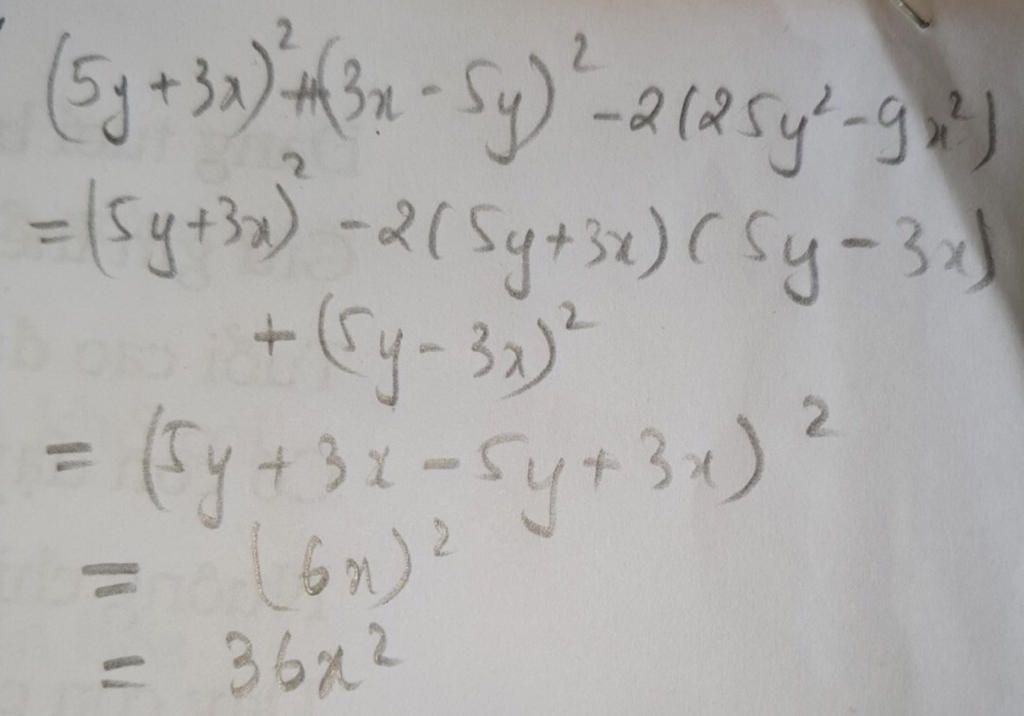 (5y+3x)²+(3x-5y)²-2(25y²-9x²)
=(5y+3x)²-2(5y+3x)(5y-3x)
+(5y-3x)²
=(5y+3x-5y+3x)²
=(6x)²
=36x²